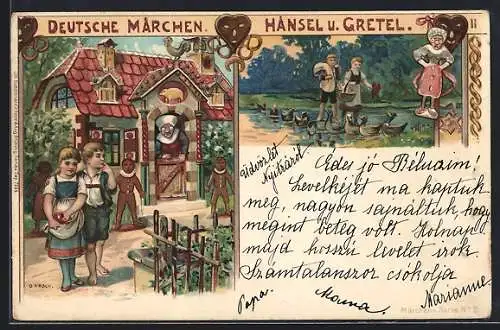 DEUTSCHE MÄRCHEN.
HÄNSEL U. GRETEL.
II
Üdvözlet
Nyitráról
Édes jó Béluaim!
Levelkéjét ma kaptuk
meg, nagyon sajnáltuk, hogy
megint beteg volt. Holnap
majd hosszú levelet irok.
Számtalanszor csókolja
Marianne
Papa.
Mamma.
Märchen-Serie Nº 2